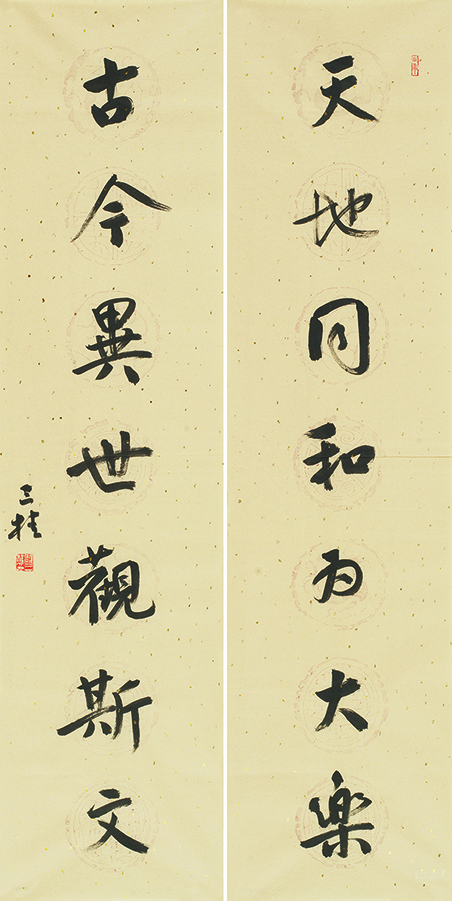 天地同和为大樂
古今異世觀斯文
三桂